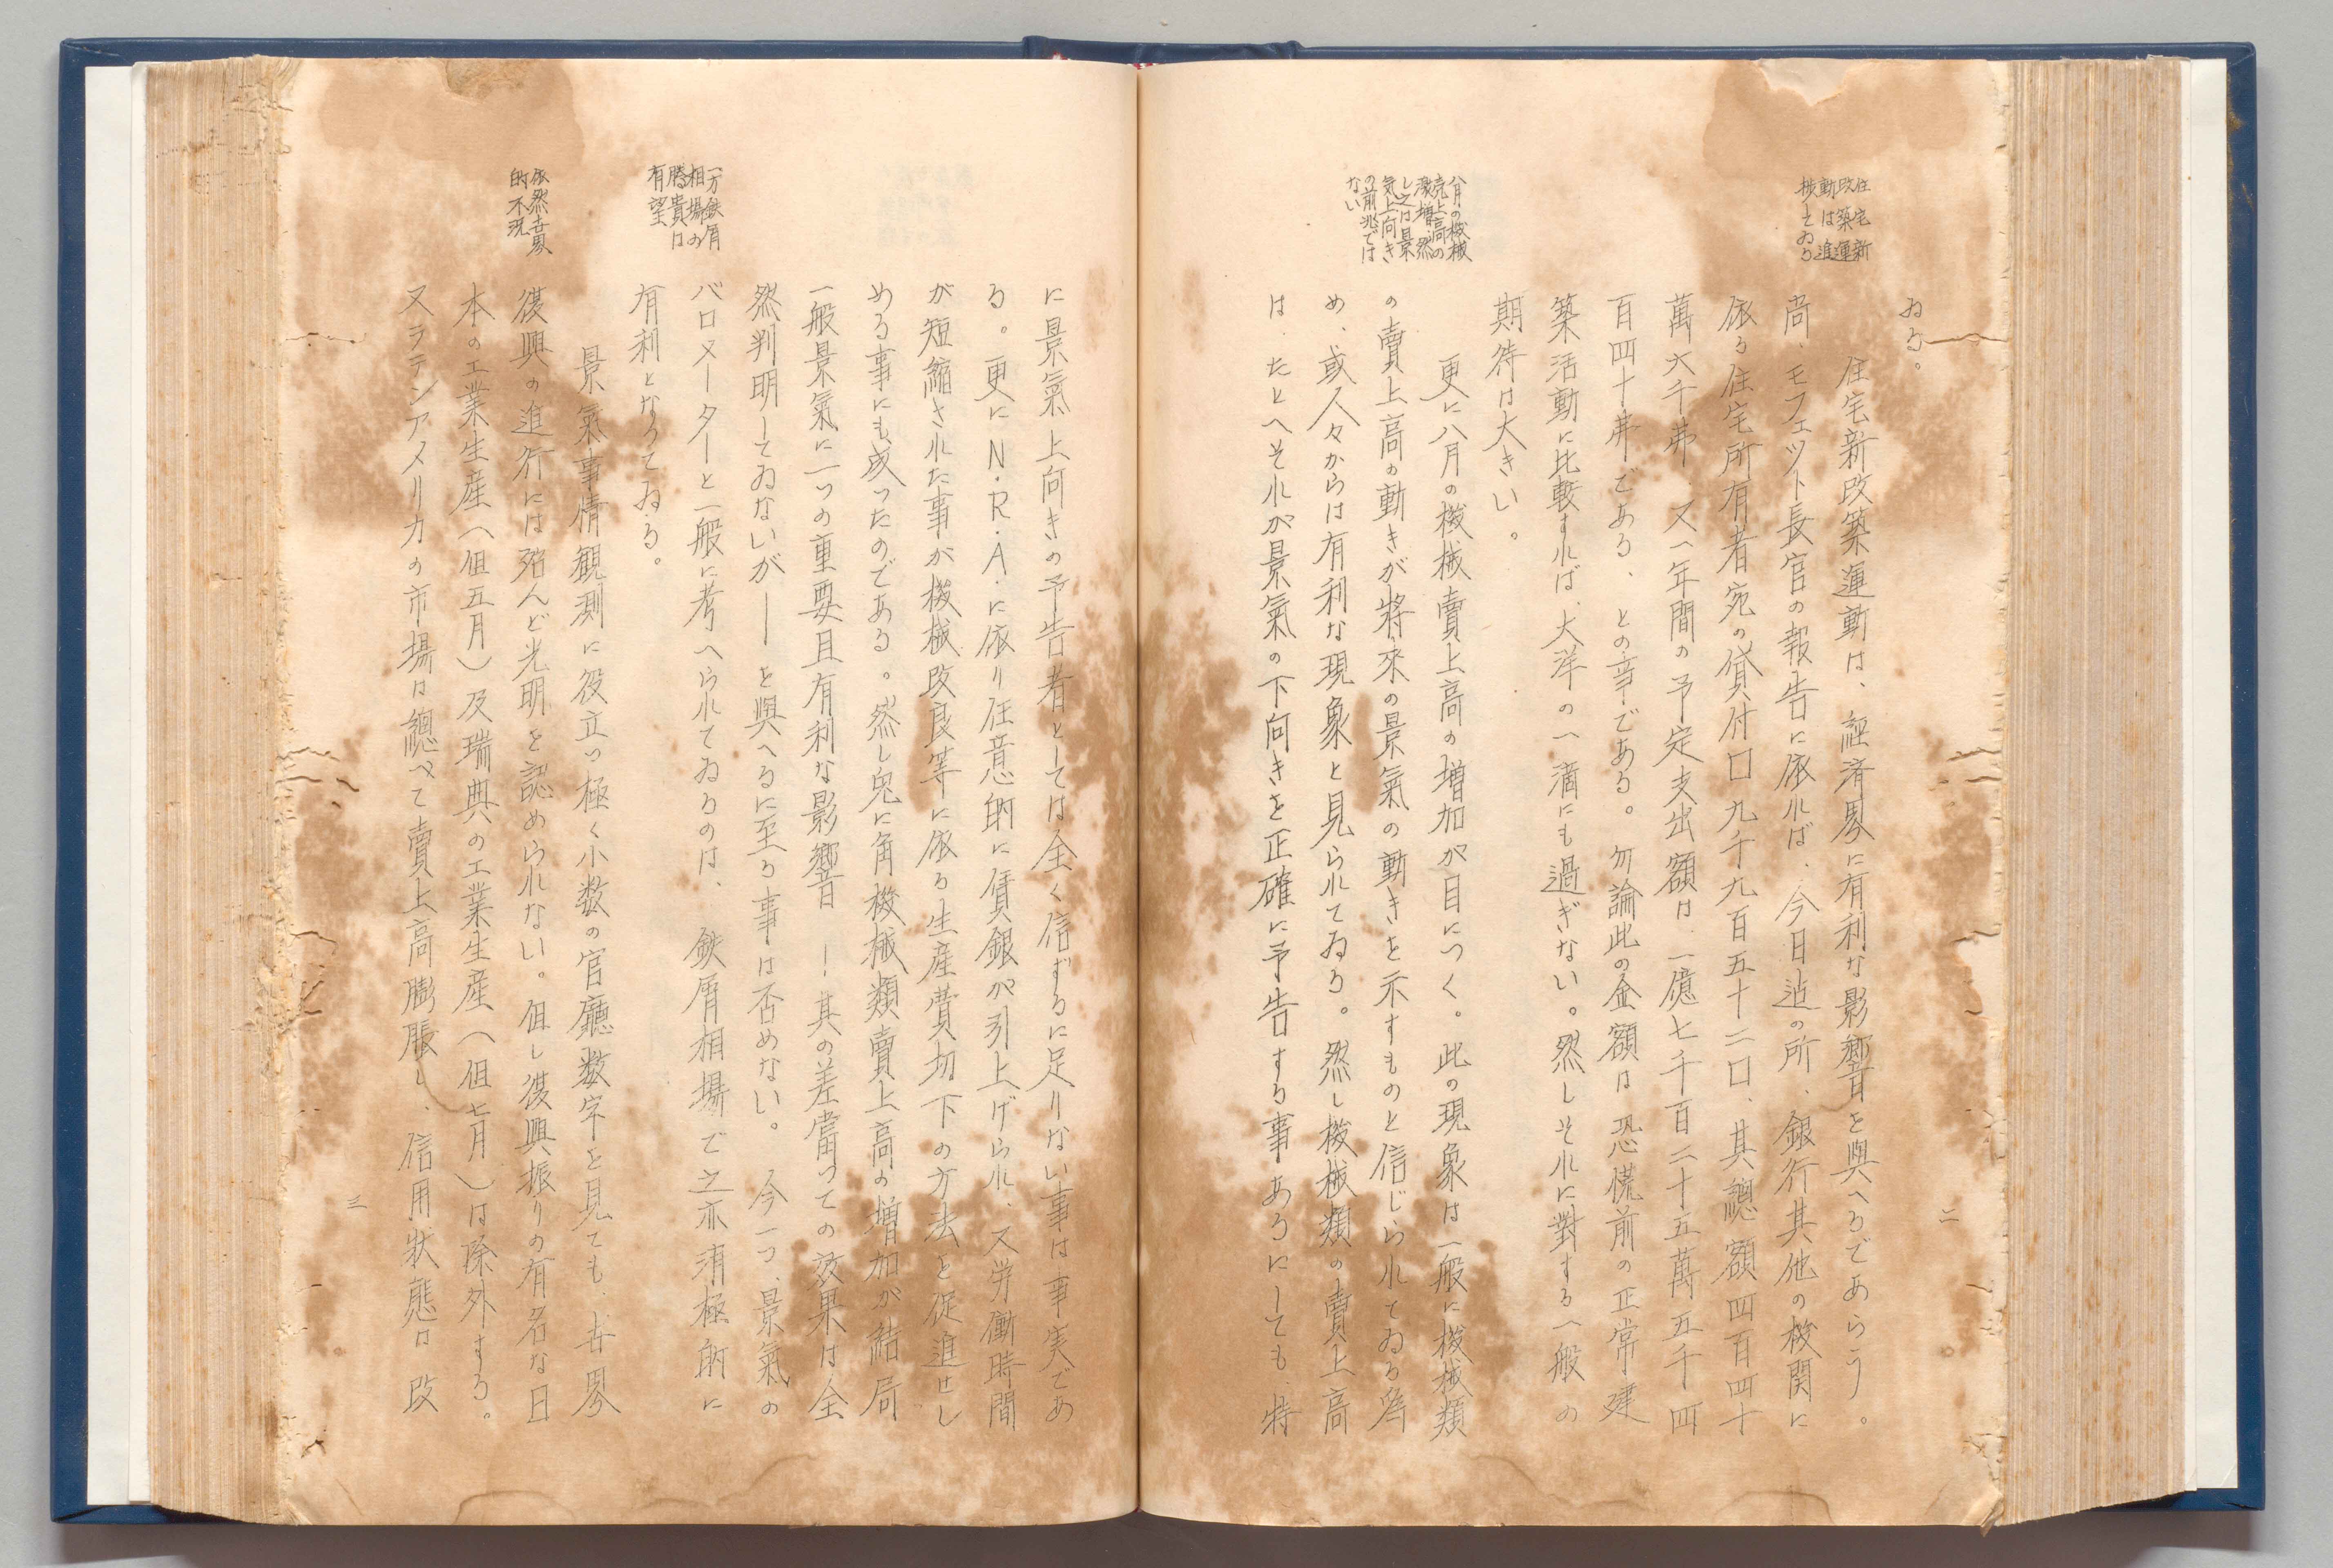 住宅新
改築運
動は進
捗とゐる
ゐる。
住宅新改築運動は、經済界に有利な影響を與へるであらう。
尚、モフェット長官の報告に依れば、今日迠の所、銀行其他の機関に
依る住宅所有者宛の貸付口九千九百五十二口、其總額四百四十
萬六千弗、又一年間の予定支出額は、一億七千百二十五萬五千四
百四十弗である、との事である。勿論此の金額は恐慌前の正常建
築活動に比較すれば、大洋の一滴にも過ぎない。然しそれに對する一般の
期待は大きい。
八月の機械
売上高の
激増、然
し之は景
気上向き
の前兆では
ない
更に八月の機械賣上高の増加が目につく。此の現象は一般に機械類
の賣上高の動きが將來の景氣の動きを示すものと信じられてゐる為
め、或人々からは有利な現象と見られてゐる。然し機械類の賣上高
は、たとへそれが景氣の下向きを正確に予告する事あるにしても、特
二
に景氣上向きの予告者としては全く信ずるに足りない事は事実であ
る。更にN.R.A.に依り任意的に賃銀が引上げられ、又労働時間
が短縮された事が機械改良等に依る生産費切下の方法を促進せし
める事にも成ったのである。然し兎に角機械類賣上高の増加が結局
一般景氣に一つの重要且有利な影響―其の差當っての效果は全
然判明してゐないが――を與へるに至る事は否めない。今一つ、景氣の
一方鉄屑
相場の
騰貴は
有望
バロメーターと一般に考へられてゐるのは、鉄屑相場で之亦消極的に
有利となってゐる。
景氣事情観測に役立つ極く小数の官廳数字を見ても、世界
依然世界
的不況
復興の進行には殆んど光明を認められない。但し復興振りの有名な日
本の工業生産(但五月)及瑞典の工業生産(但七月)は除外する。
又ラテンアメリカの市場は總べて賣上高膨脹し、信用状態は改
三